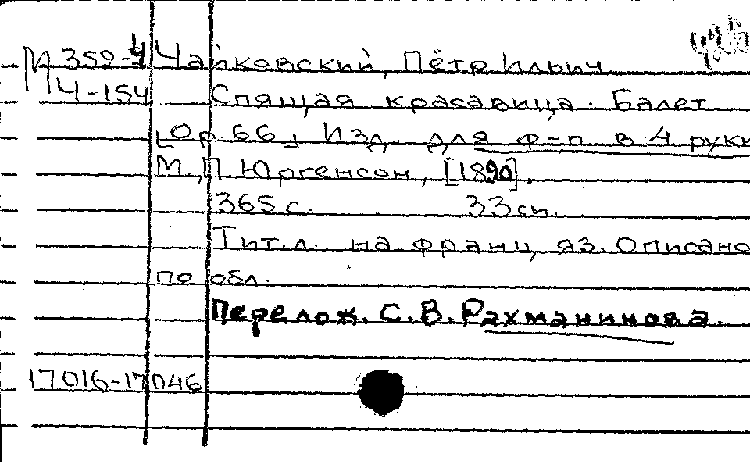 М 359-4 Чайковский, Пётр Ильич
М 4-154 Спящая красавица. Балет
[Ор. 66] Изд. для ф-п в 4 руки
М., П. Юргенсон, [1890].
365 с. 33 см.
Тит. л. на франц. яз. Описано
по обл.
Перелож. С. В. Рахманинова.
17016-17046